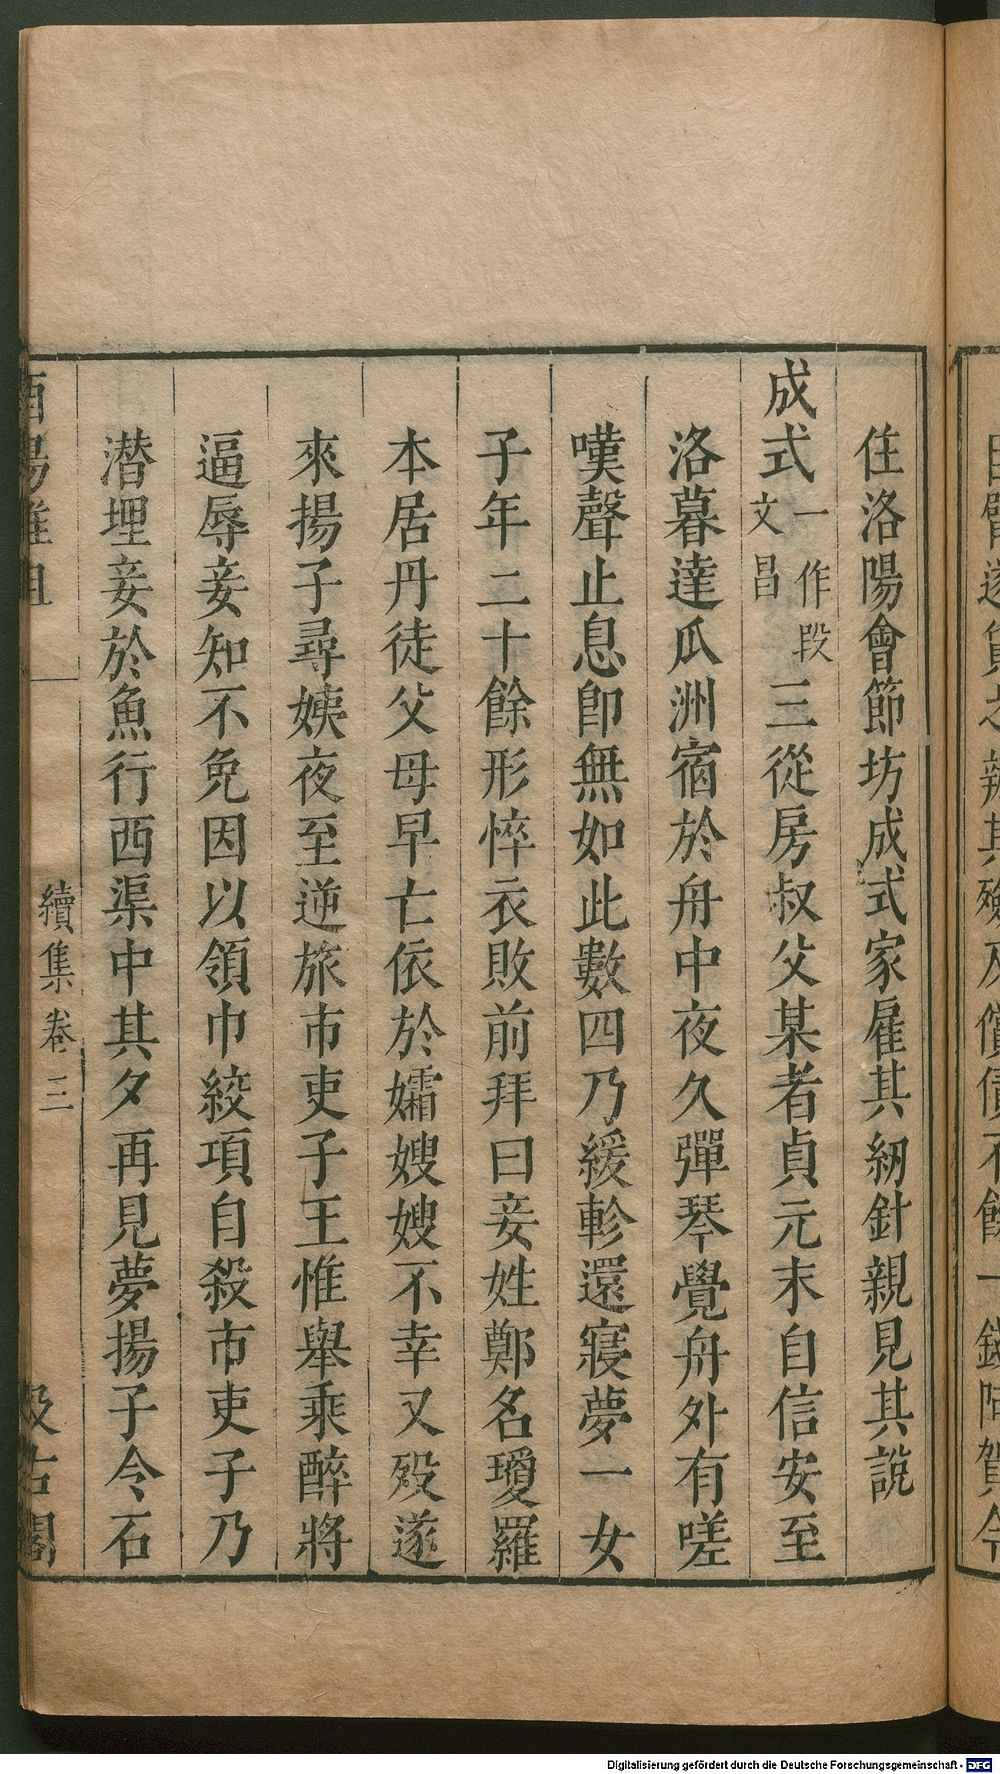 住洛陽會節坊成式家雇其紉針親見其說
成式一作段文昌三從房叔父某者貞元末自信安至
洛暮達瓜洲宿於舟中夜久彈琴覺舟外有嗟
嘆聲止息卽無如此數四乃緩軫還寢夢一女
子年二十餘形悴衣敗前拜曰妾姓鄭名瓊羅
本居丹徒父母早亡依於孀嫂嫂不幸又歿遂
來揚子尋姨夜至逆旅市吏子王惟舉乘醉將
逼辱妾知不免因以領巾絞項自殺市吏子乃
潜埋妾於魚行西渠中其夕再見夢揚子令石
續集卷三
汲古閣
Digitalisierung gefördert durch die Deutsche Forschungsgemeinschaft - DFG